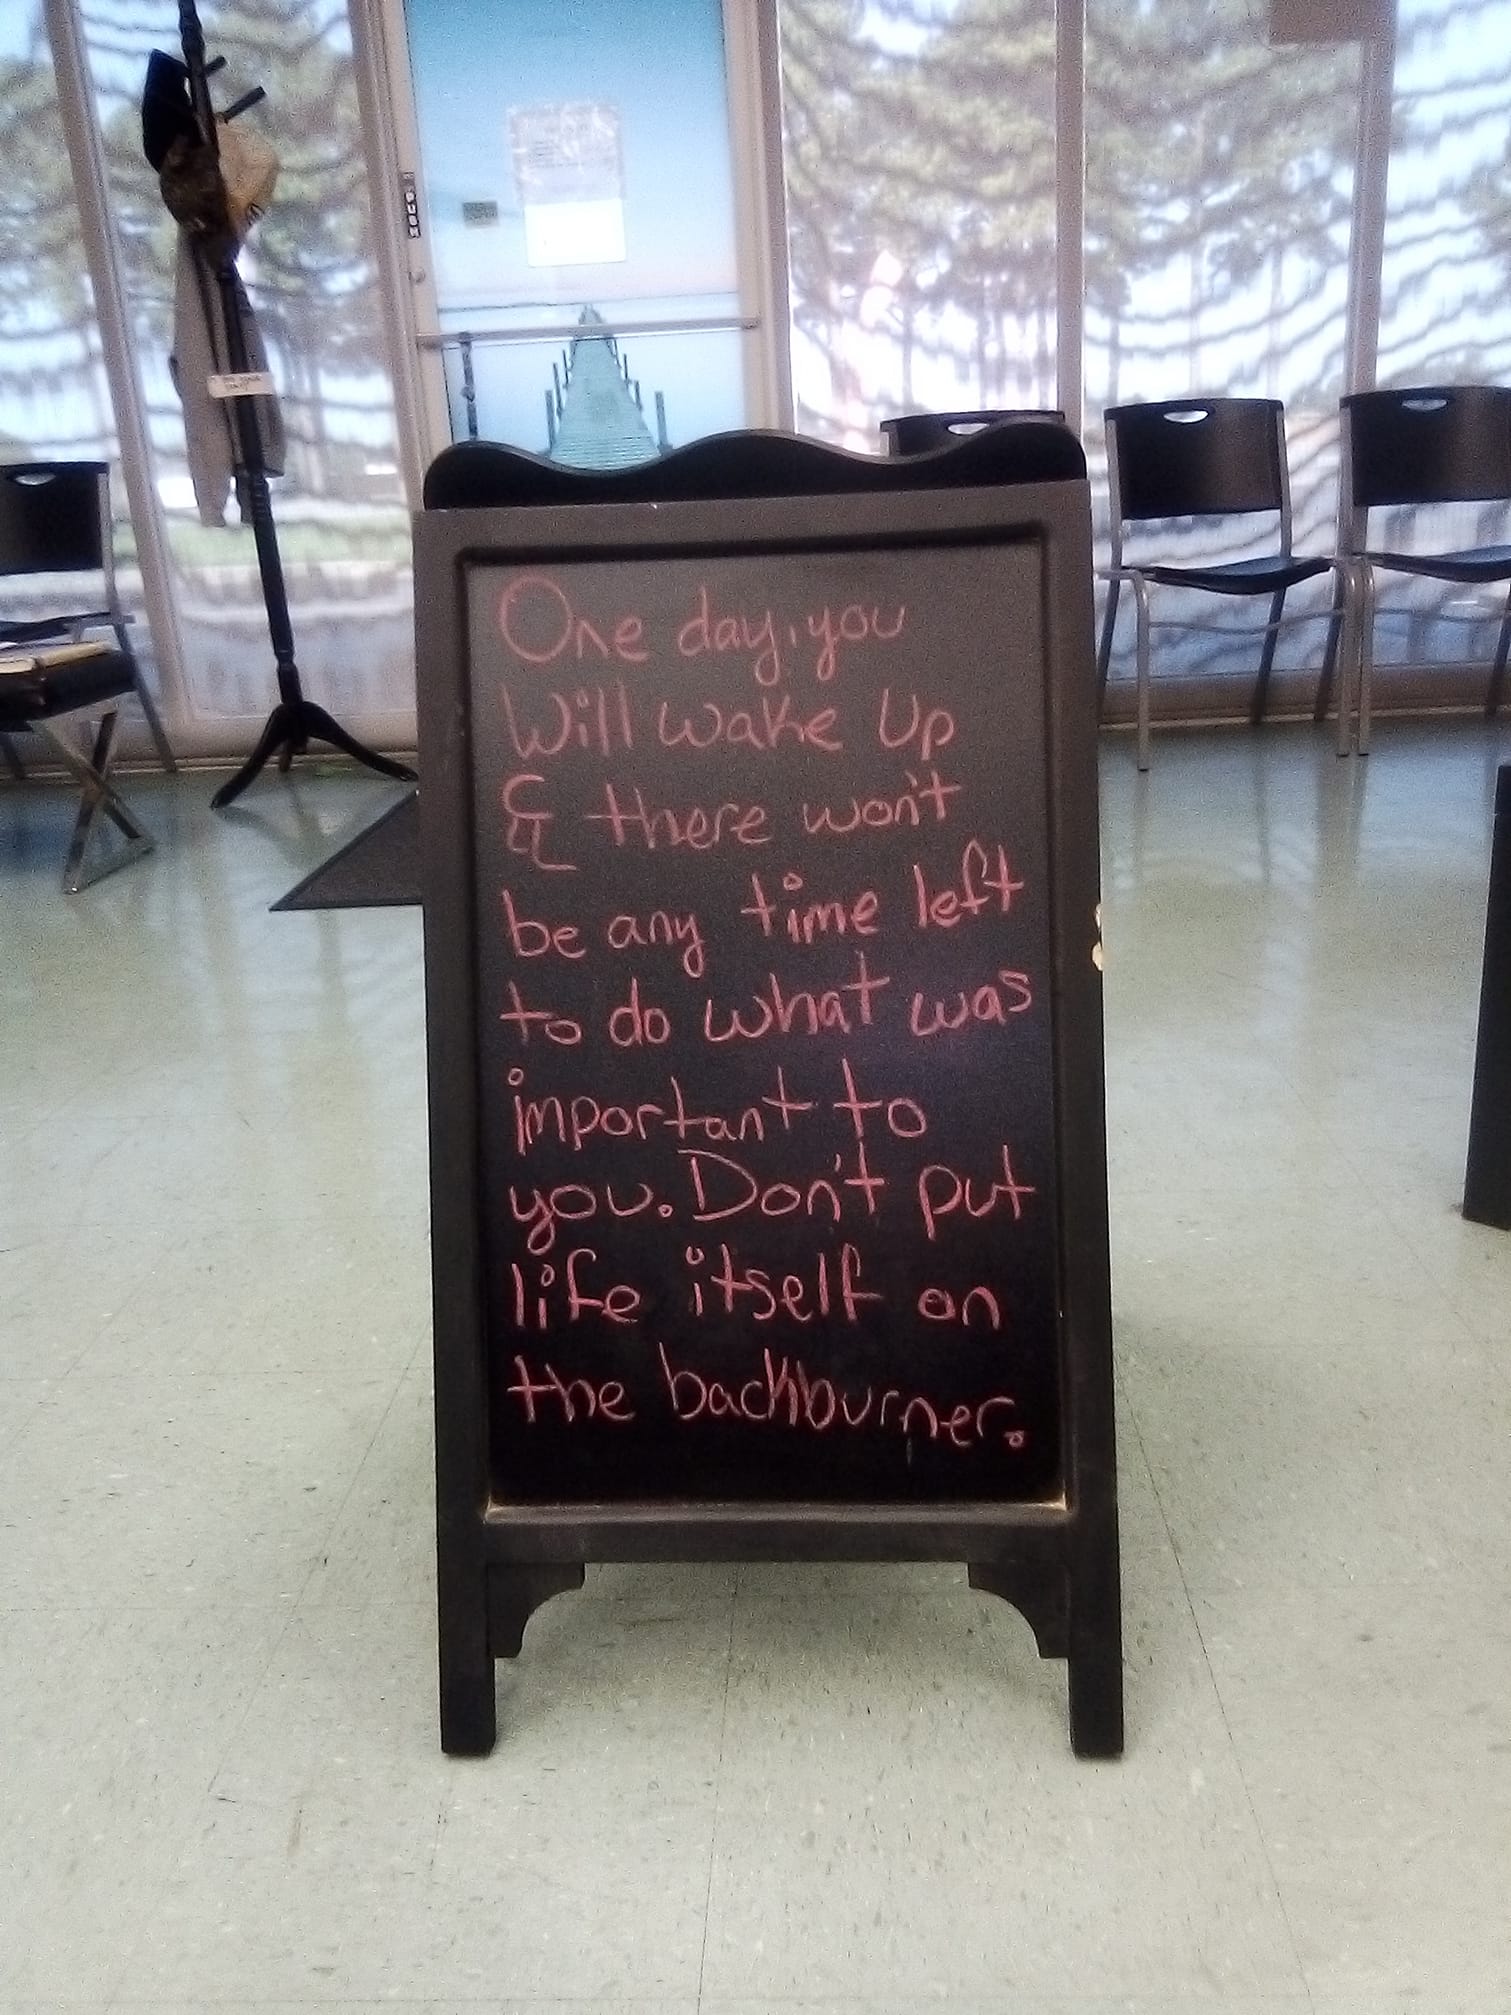 PUSH
One day, you
Will wake Up
& there won't
be any time left
to do what was
important to
you. Don't put
life itself on
the backburner.